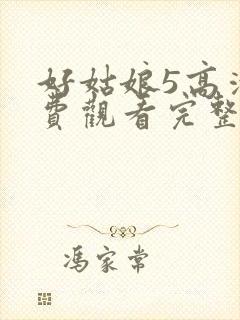 好姑娘5高清
費觀看完整
馮家常